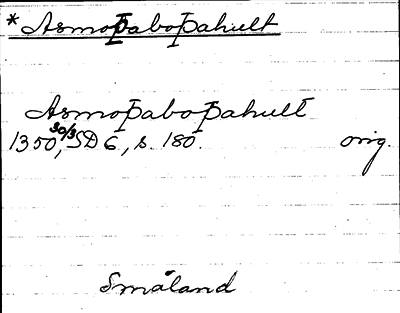 * Asmoþaboþahult
Asmoþaboþahult
1350 30/3, SD 6, s. 180. orig.
Småland